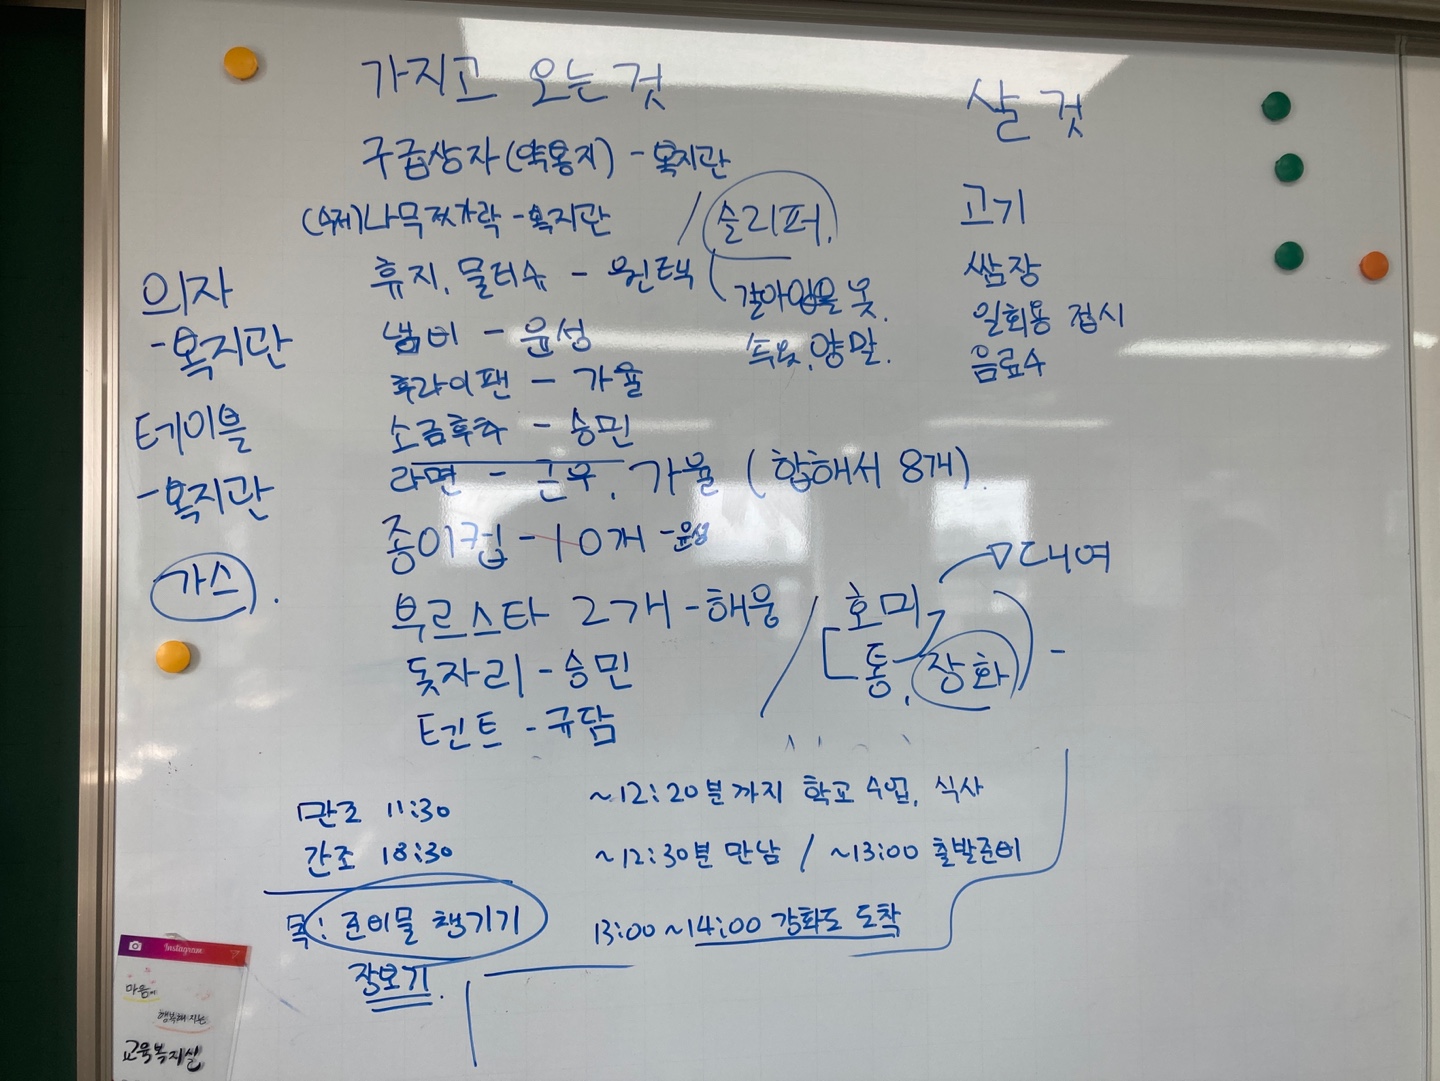 가지고 오는 것
구급상자 (약봉지) - 복지관
(수제) 나무젓가락 - 복지관
휴지, 물티슈 - 원택
냄비 - 윤성
후라이팬 - 가율
소금후추 - 승민
라면 - 근우, 가율 (합해서 8개).
종이컵 - 10개 - 윤성
부르스타 2개 - 해웅
돗자리 - 승민
텐트 - 규담
의자
- 복지관
테이블
- 복지관
가스.
/ 슬리퍼.
갈아입을 옷.
속옷, 양말.
살 것
고기
쌈장
일회용 접시
음료수
호미 → 대여
통, 장화 -
만조 11:30
간조 18:30
목: 준비물 챙기기
장보기.
~12:20분까지 학교 수업, 식사
~12:30분 만남 / ~13:00 출발준비
13:00~14:00 강화도 도착
Instagram
마음이
행복해지는
교육복지실